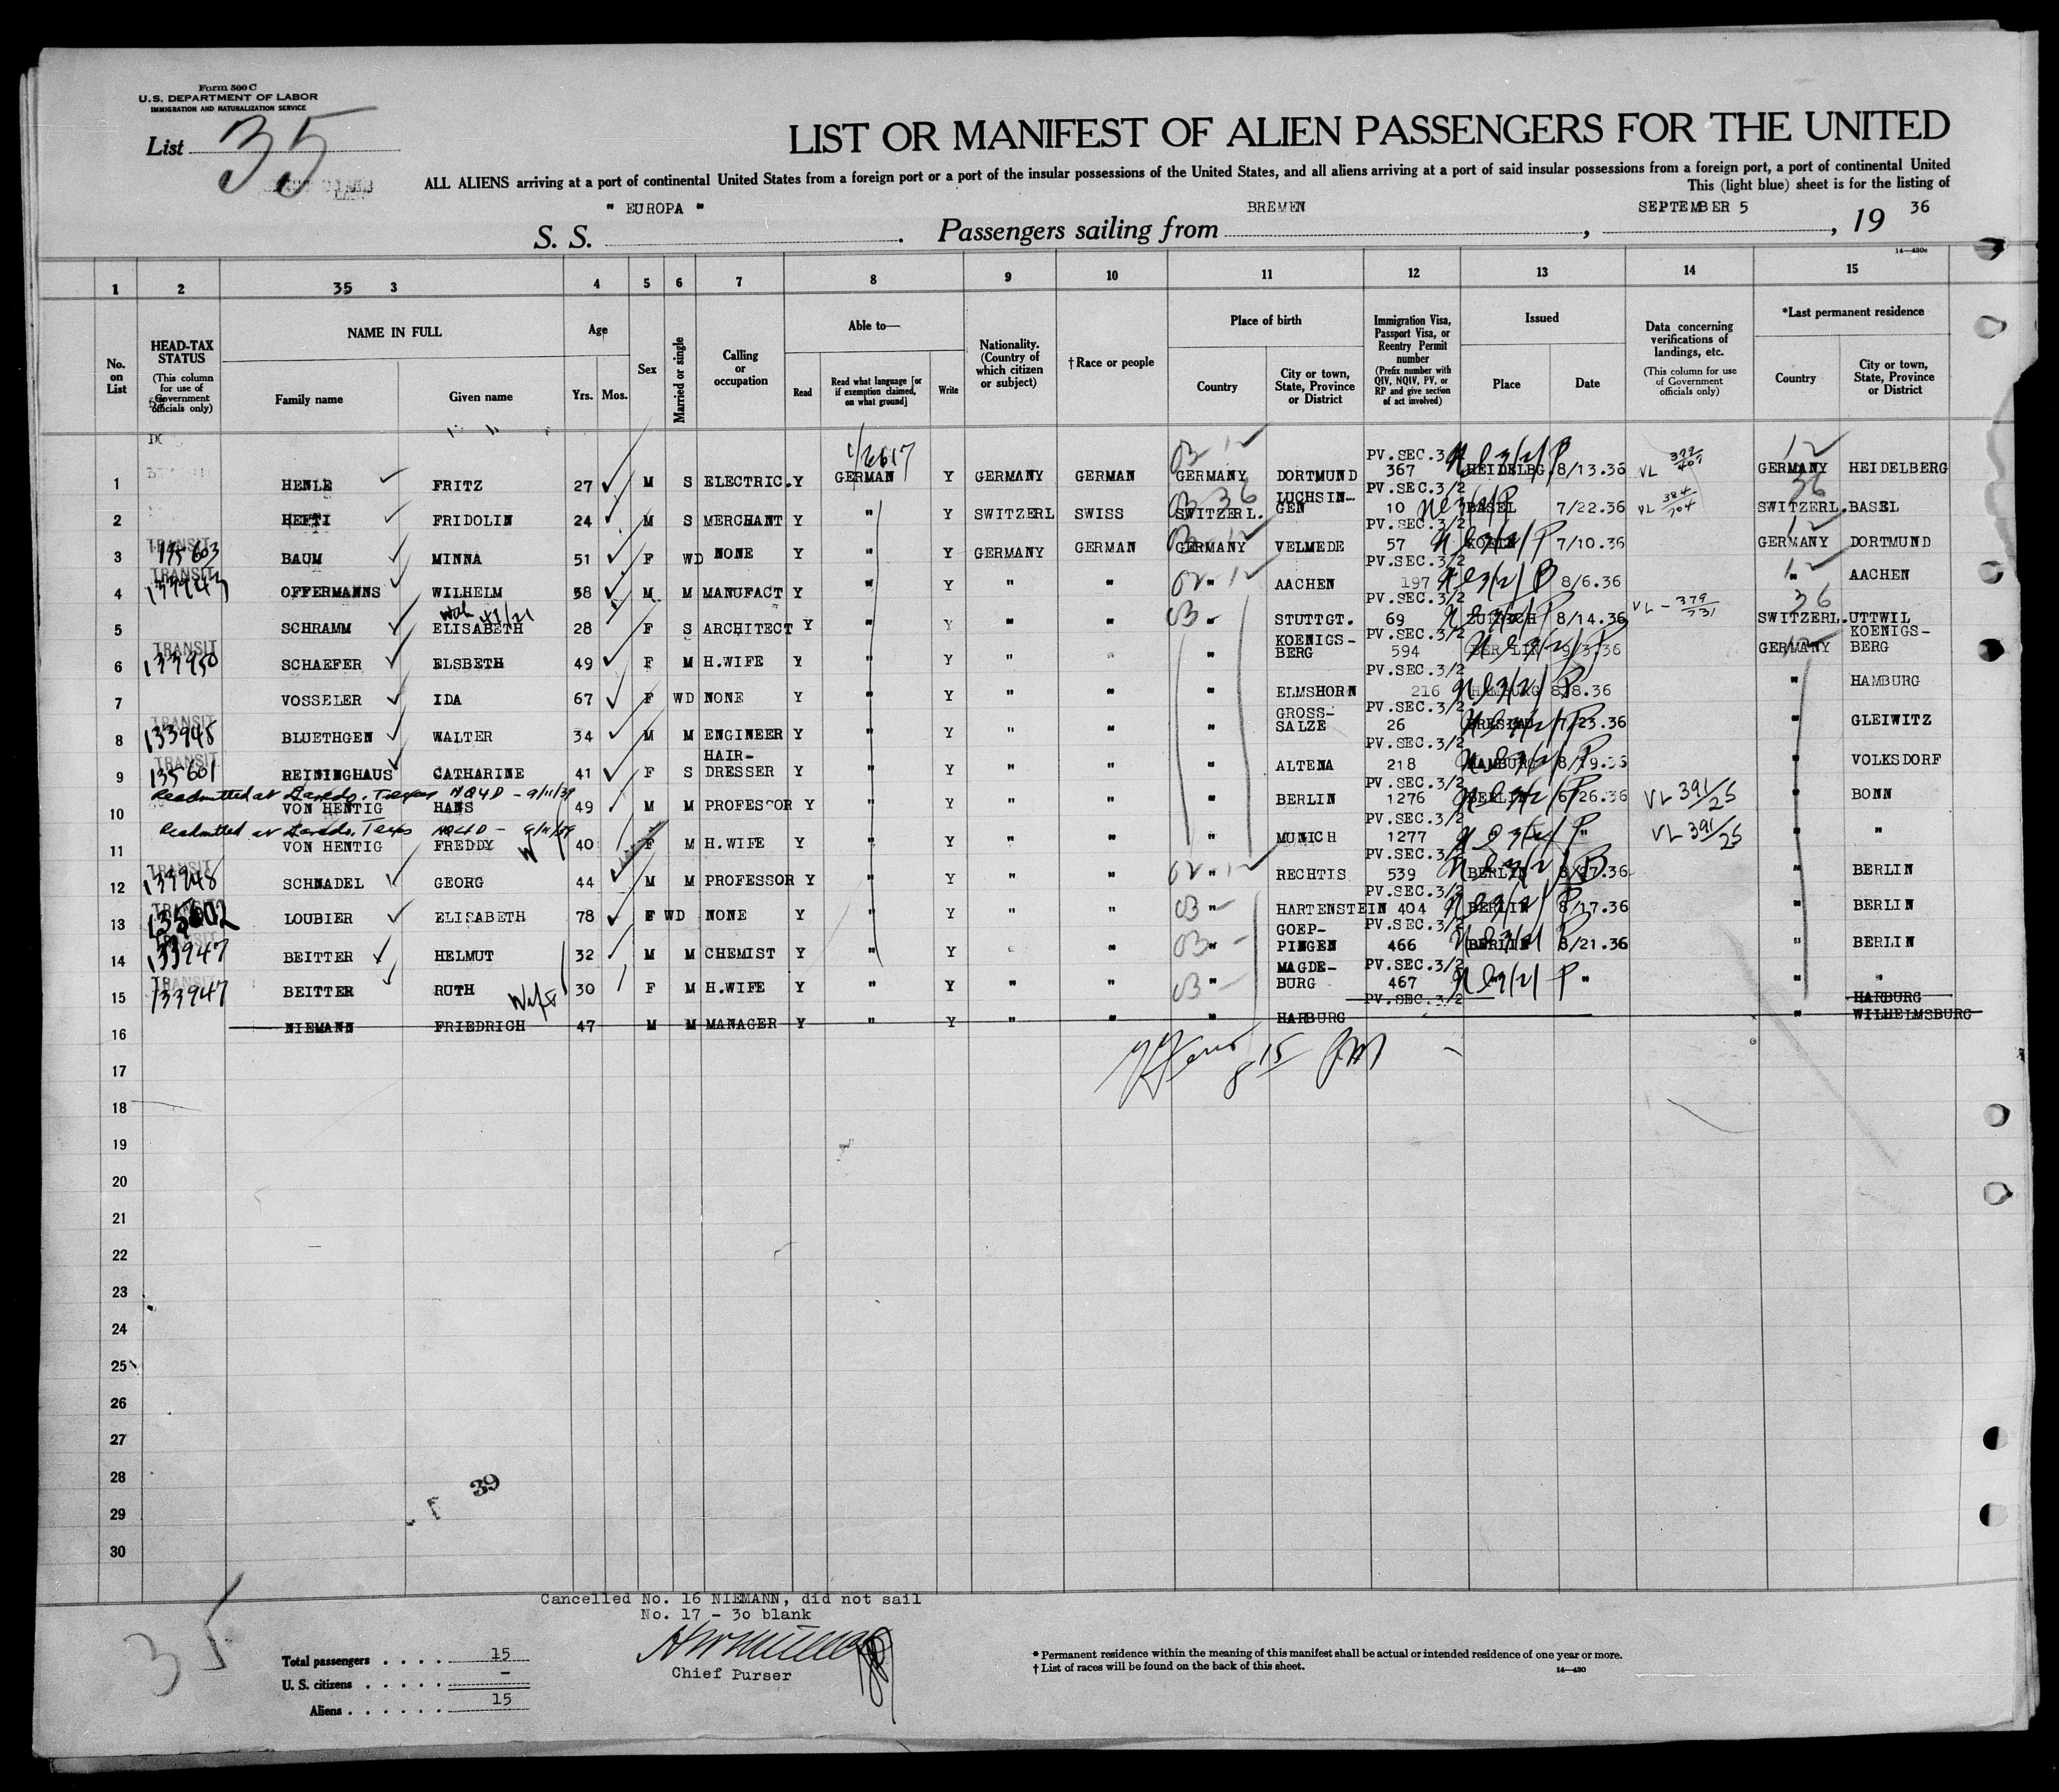 Form 500 C
U.S. DEPARTMENT OF LABOR
IMMIGRATION AND NATURALIZATION SERVICE
List 35
LIST OR MANIFEST OF ALIEN PASSENGERS FOR THE UNITED
ALL ALIENS arriving at a port of continental United States from a foreign port or a port of the insular possessions of the United States, and all aliens arriving at a port of said insular possessions from a foreign port, a port of continental United
This (light blue) sheet is for the listing of
S. S. " EUROPA ". Passengers sailing from BREMEN, SEPTEMBER 5, 19 36
14—430c
1 2 35 3 4 5 6 7 8 9 10 11 12 13 14 15
No. on List
HEAD-TAX STATUS (This column for use of Government officials only)
NAME IN FULL Family name Given name
Age Yrs. Mos.
Sex
Married or single
Calling or occupation
Able to— Read Read what language [or if exemption claimed, on what ground] Write
Nationality. (Country of which citizen or subject)
† Race or people
Place of birth Country City or town, State, Province or District
Immigration Visa, Passport Visa, or Reentry Permit number (Prefix number with QIV, NQIV, PV, or RP and give section of act involved)
Issued Place Date
Data concerning verifications of landings, etc. (This column for use of Government officials only)
*Last permanent residence Country City or town, State, Province or District
1 HENLE FRITZ 27 M S ELECTRIC. Y GERMAN Y GERMANY GERMAN GERMANY DORTMUND PV.SEC.3/2 367 HEIDELBG. 8/13.36 VL GERMANY HEIDELBERG
2 HEFTI FRIDOLIN 24 M S MERCHANT Y " Y SWITZERL SWISS SWITZERL. LUCHSIN-GEN PV.SEC.3/2 10 BASEL 7/22.36 VL 384/704 SWITZERL. BASEL
3 TRANSIT BAUM MINNA 51 F WD NONE Y " Y GERMANY GERMAN GERMANY VELMEDE PV.SEC.3/2 57 KOELN 7/10.36 GERMANY DORTMUND
4 TRANSIT OFFERMANNS WILHELM 58 M M MANUFACT Y " Y " " " AACHEN PV.SEC.3/2 197 8/6.36 " AACHEN
5 SCHRAMM ELISABETH 28 F S ARCHITECT Y " Y " " " STUTTGT. PV.SEC.3/2 69 ZURICH 8/14.36 VL - 379/731 SWITZERL. UTTWIL
6 TRANSIT 133950 SCHAEFER ELSBETH 49 F M H.WIFE Y " Y " " " KOENIGS-BERG PV.SEC.3/2 594 BERLIN 9/3.36 GERMANY KOENIGS-BERG
7 VOSSELER IDA 67 F WD NONE Y " Y " " " ELMSHORN PV.SEC.3/2 216 HAMBURG 8/8.36 " HAMBURG
8 TRANSIT 133945 BLUETHGEN WALTER 34 M M ENGINEER Y " Y " " " GROSS-SALZE PV.SEC.3/2 26 BRESLAU 7/23.36 " GLEIWITZ
9 TRANSIT 135601 REININGHAUS CATHARINE 41 F S HAIR-DRESSER Y " Y " " " ALTENA PV.SEC.3/2 218 HAMBURG 8/19.36 " VOLKSDORF
Readmitted at Laredo, Texas - 9/11/39
10 VON HENTIG HANS 49 M M PROFESSOR Y " Y " " " BERLIN PV.SEC.3/2 1276 BERLIN 6/26.36 VL 391/25 " BONN
Readmitted at Laredo, Texas - 9/11/39
11 VON HENTIG FREDDY 40 F M H.WIFE Y " Y " " " MUNICH PV.SEC.3/2 1277 " " VL 391/25 " "
12 TRANSIT 133948 SCHNADEL GEORG 44 M M PROFESSOR Y " Y " " " RECHTIS PV.SEC.3/2 539 BERLIN 8/27.36 " BERLIN
13 TRANSIT 135602 LOUBIER ELISABETH 78 F WD NONE Y " Y " " " HARTENSTEIN PV.SEC.3/2 404 BERLIN 8/17.36 " BERLIN
14 TRANSIT 133947 BEITTER HELMUT 32 M M CHEMIST Y " Y " " " GOEP-PINGEN PV.SEC.3/2 466 BERLIN 8/21.36 " BERLIN
15 TRANSIT 133947 BEITTER RUTH Wife 30 F M H.WIFE Y " Y " " " MAGDE-BURG PV.SEC.3/2 467 " " " "
16 NIEMANN FRIEDRICH 47 M M MANAGER Y " Y " " " HARBURG PV.SEC.3/2 " HARBURG WILHELMSBURG
17
18
19
20
21
22
23
24
25
26
27
28
29
30
39
35
Cancelled No. 16 NIEMANN, did not sail
No. 17 - 30 blank
Chief Purser
Total passengers . . . . 15
U. S. citizens . . . . . –
Aliens . . . . . . 15
* Permanent residence within the meaning of this manifest shall be actual or intended residence of one year or more.
† List of races will be found on the back of this sheet.
14—430